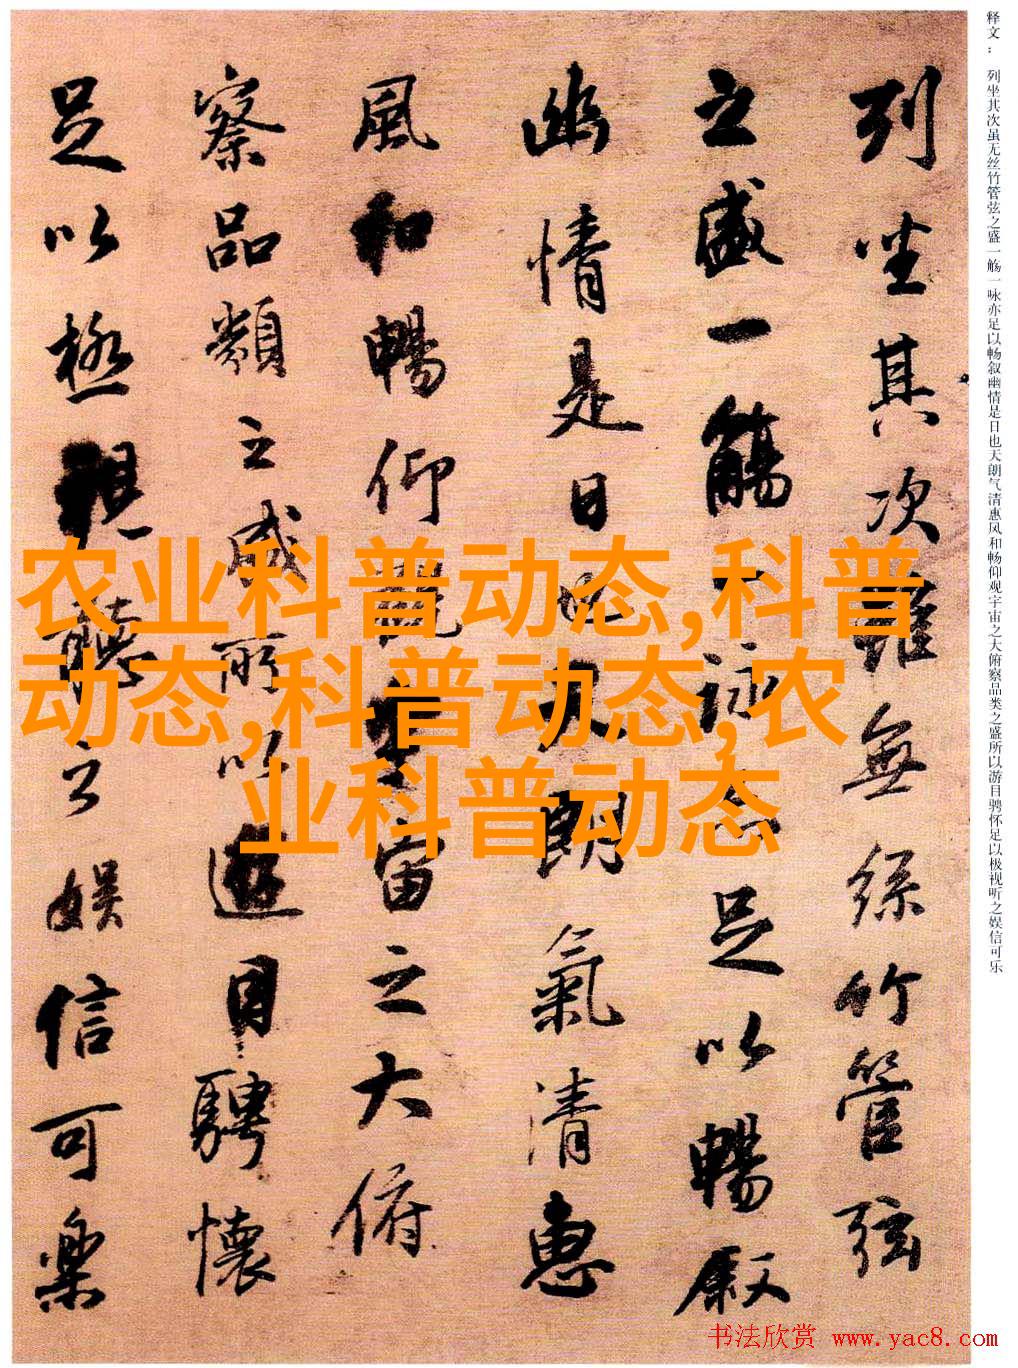 释文： 列坐其次虽无丝竹管弦之盛一觞一咏亦足以畅叙幽情是日也天朗气清惠风和畅仰观宇宙之大俯察品类之盛所以游目骋怀足以极视听之娱信可乐
列坐其次雖無絲竹管弦
之盛一觴一詠亦足以暢叙
幽情是日也天朗氣清惠
風和暢仰觀宇宙之大俯
察品類之盛所以遊目騁懷
足以極視聽之娛信可樂
农业科普动态,科普
动态,科普动态,农
业科普动态
书法欣赏 www.yac8.com